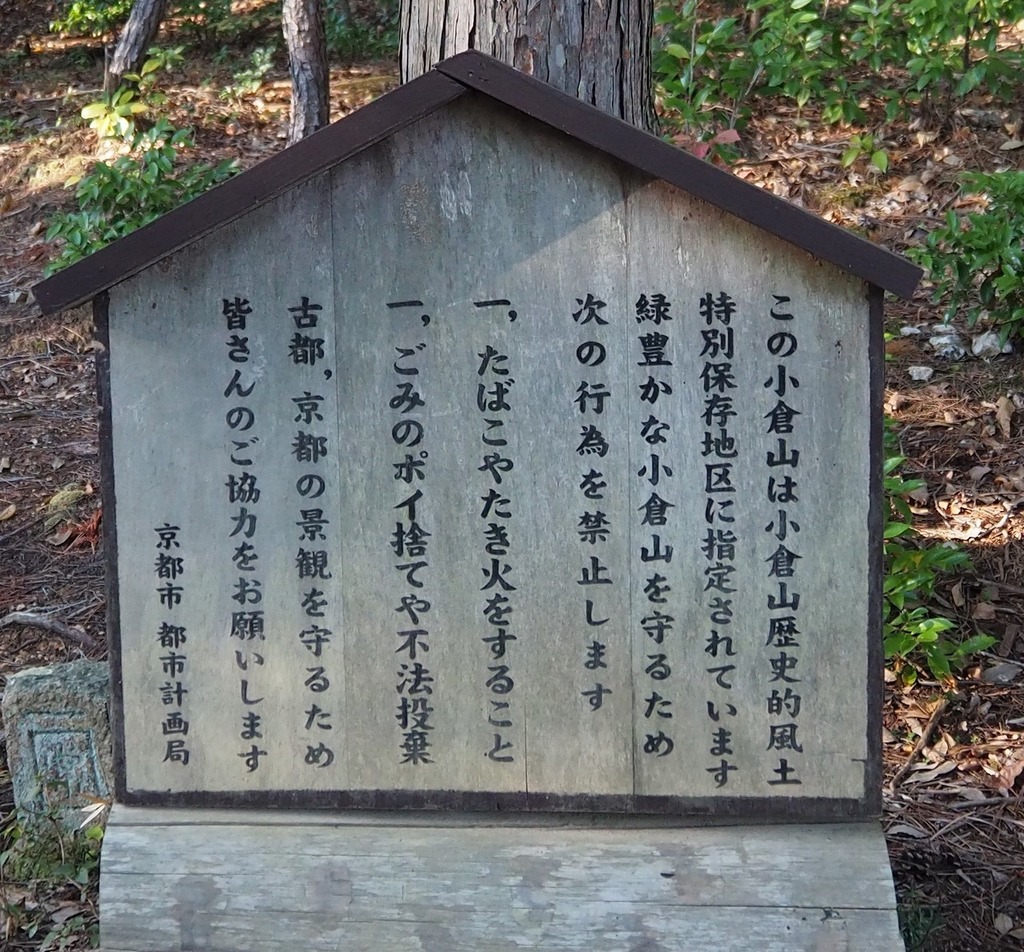 この小倉山は小倉山歴史的風土
特別保存地区に指定されています
緑豊かな小倉山を守るため
次の行為を禁止します
一，たばこやたき火をすること
一，ごみのポイ捨てや不法投棄
古都，京都の景観を守るため
皆さんのご協力をお願いします
京都市 都市計画局